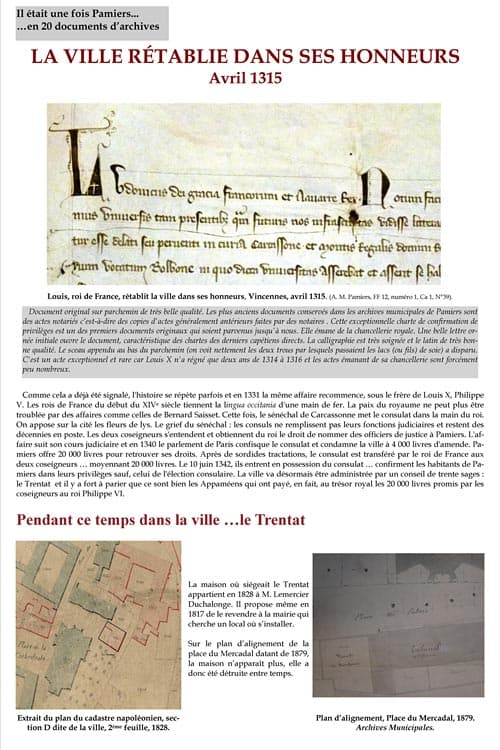 Il était une fois Pamiers...
…en 20 documents d’archives
LA VILLE RÉTABLIE DANS SES HONNEURS
Avril 1315
Ludovicus dei gracia francorum et Navarre Rex Notum faci
mus universis tam presentibus qm futuris nos infrascriptas vidisse litteras
Louis, roi de France, rétablit la ville dans ses honneurs, Vincennes, avril 1315. (A. M. Pamiers, FF 12, numéro 1, Ca 1, N°39).
Document original sur parchemin de très belle qualité. Les plus anciens documents conservés dans les archives municipales de Pamiers sont
des actes notariés c’est-à-dire des copies d’actes généralement antérieures faites par des notaires . Cette exceptionnelle charte de confirmation de
privilèges est un des premiers documents originaux qui soient parvenus jusqu’à nous. Elle émane de la chancellerie royale. Une belle lettre or-
née initiale ouvre le document, caractéristique des chartes des derniers capétiens directs. La calligraphie est très soignée et le latin de très bon-
ne qualité. Le sceau appendu au bas du parchemin (on voit nettement les deux trous par lesquels passaient les lacs (ou fils) de soie) a disparu.
C’est un acte exceptionnel et rare car Louis X n’a régné que deux ans de 1314 à 1316 et les actes émanant de sa chancellerie sont forcément
peu nombreux.
Comme cela a déjà été signalé, l'histoire se répète parfois et en 1331 la même affaire recommence, sous le frère de Louis X, Philippe
V. Les rois de France du début du XIVᵉ siècle tiennent la lingua occitania d’une main de fer. La paix du royaume ne peut plus être
troublée par des affaires comme celles de Bernard Saisset. Cette fois, le sénéchal de Carcassonne met le consulat dans la main du roi.
On appose sur la cité les fleurs de lys. Le grief du sénéchal : les consuls ne remplissent pas leurs fonctions judiciaires et restent des
décennies en poste. Les deux coseigneurs s'entendent et obtiennent du roi le droit de nommer des officiers de justice à Pamiers. L'af-
faire suit son cours judiciaire et en 1340 le parlement de Paris confisque le consulat et condamne la ville à 4 000 livres d'amende. Pa-
miers offre 20 000 livres pour retrouver ses droits. Après de sordides tractations, le consulat est transféré par le roi de France aux
deux coseigneurs … moyennant 20 000 livres. Le 10 juin 1342, ils entrent en possession du consulat … confirment les habitants de Pa-
miers dans leurs privilèges sauf, celui de l'élection consulaire. La ville va désormais être administrée par un conseil de trente sages :
le Trentat et il y a fort à parier que ce sont bien les Appaméens qui ont payé, en fait, au trésor royal les 20 000 livres promis par les
coseigneurs au roi Philippe VI.
Pendant ce temps dans la ville …le Trentat
La maison où siégeait le Trentat
appartient en 1828 à M. Lemercier
Duchalonge. Il propose même en
1817 de le revendre à la mairie qui
cherche un local où s’installer.
Sur le plan d’alignement de la
place du Mercadal datant de 1879,
la maison n’apparaît plus, elle a
donc été détruite entre temps.
Place de la
Cathédrale
Extrait du plan du cadastre napoléonien, sec-
tion D dite de la ville, 2ᵉᵐᵉ feuille, 1828.
Plan d’alignement, Place du Mercadal, 1879.
Archives Municipales.